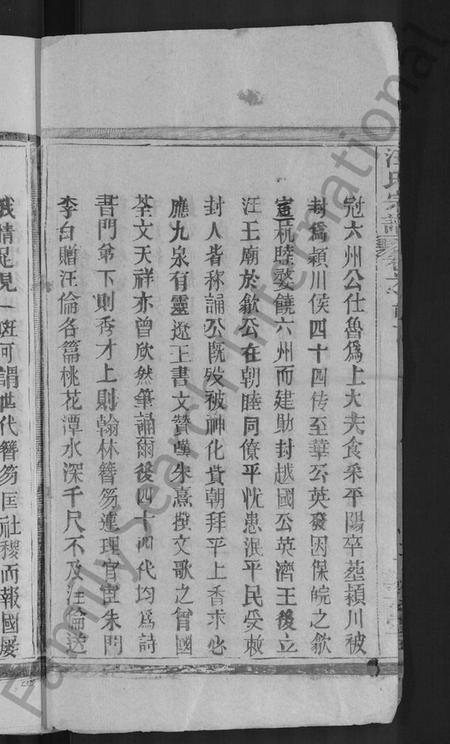 冠六州公仕魯爲上大夫食采平陽卒塟頴川被
封爲頴川侯四十四传至華公英發因保皖之歙
宣杭睦婺饒六州而建勛封越國公英濟王後立
汪王廟於歙公在朝睦同僚平忧患泯平民受敕
封人皆称誦公既殁被神化貴朝拜平上香求必
應九泉有靈逰王書文贊嘆朱熹撰文歌之曾國
荃文天祥亦曾欣然筆誦爾後四十四代均爲詩
書門弟下則秀才上則翰林簪笏連理官宦朱門
李白贈汪倫名篇桃花潭水深千尺不及汪倫送
我情足見一斑可謂世代簪笏匡社稷而報國屡
汪氏宗譜
Family Search International